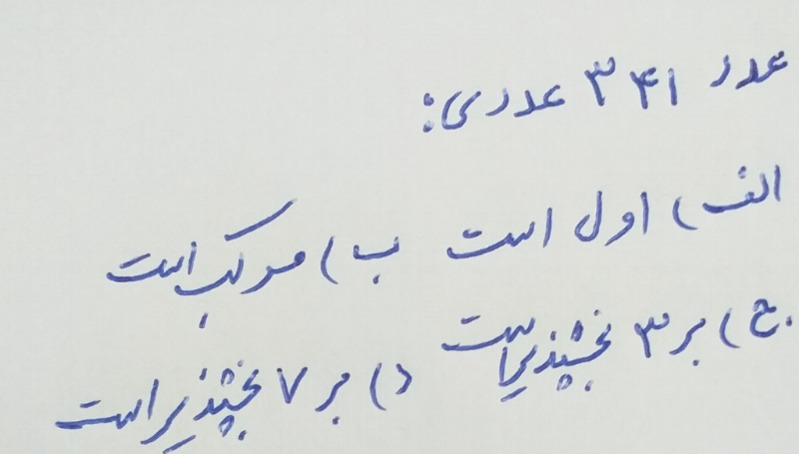 عدد ۳۴۱ عددی:
الف) اول است ب) مرکب است
ج) بر ۳ بخشپذیر است
د) بر ۷ بخشپذیر است